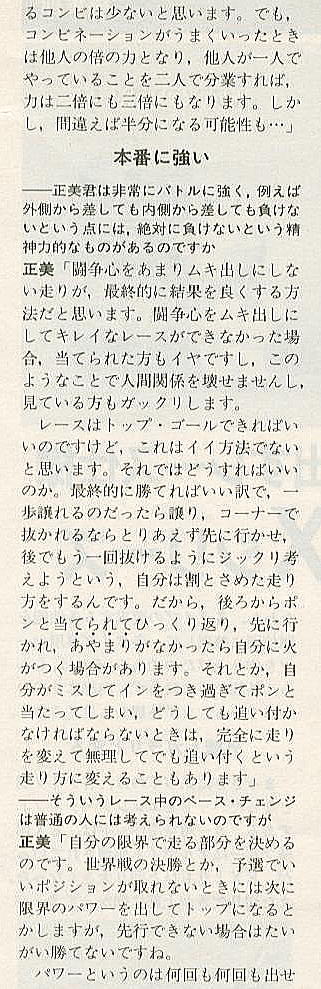 るコンビは少ないと思います。でも，
コンビネーションがうまくいったとき
は他人の倍の力となり，他人が一人で
やっていることを二人で分業すれば，
力は二倍にも三倍にもなります。しか
し，間違えば半分になる可能性も…」
本番に強い
――正美君は非常にバトルに強く，例えば
外側から差しても内側から差しても負けな
いという点には，絶対に負けないという精
神力的なものがあるのですか
正美「闘争心をあまりムキ出しにしな
い走りが，最終的に結果を良くする方
法だと思います。闘争心をムキ出しに
してキレイなレースができなかった場
合，当てられた方もイヤですし，この
ようなことで人間関係を壊せませんし，
見ている方もガックリします。
　レースはトップ・ゴールできればい
いのですけど，これはイイ方法でない
と思います。それではどうすればいい
のか。最終的に勝てればいい訳で，一
歩譲れるのだったら譲り，コーナーで
抜かれるならとりあえず先に行かせ，
後でもう一回抜けるようにジックリ考
えようという，自分は割とさめた走り
方をするんです。だから，後ろからポ
ンと当てられてひっくり返り，先に行
かれ，あやまりがなかったら自分に火
がつく場合があります。それとか，自
分がミスしてインをつき過ぎてポンと
当たってしまい，どうしても追い付か
なければならないときは，完全に走り
を変えて無理してでも追い付くという
走り方に変えることもあります」
――そういうレース中のペース・チェンジ
は普通の人には考えられないのですが
正美「自分の限界で走る部分を決める
のです。世界戦の決勝とか，予選でい
いポジションが取れないときには次に
限界のパワーを出してトップになると
かしますが，先行できない場合はたい
がい勝てないですね。
　パワーというのは何回も何回も出せ